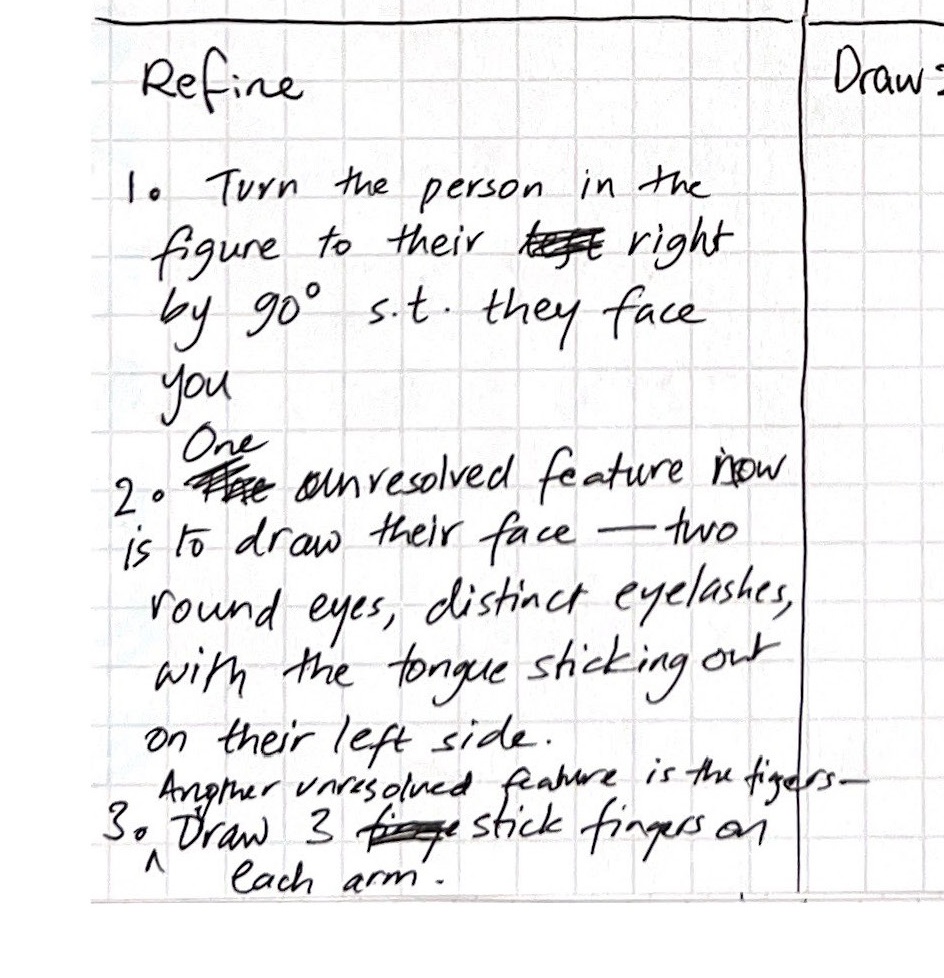 Refine
Draw:
1. Turn the person in the
figure to their left right
by 90° s.t. they face
you
One
2. The unresolved feature now
is to draw their face — two
round eyes, distinct eyelashes,
with the tongue sticking out
on their left side.
Another unresolved feature is the figers—
3. Draw 3 stick fingers on
each arm.